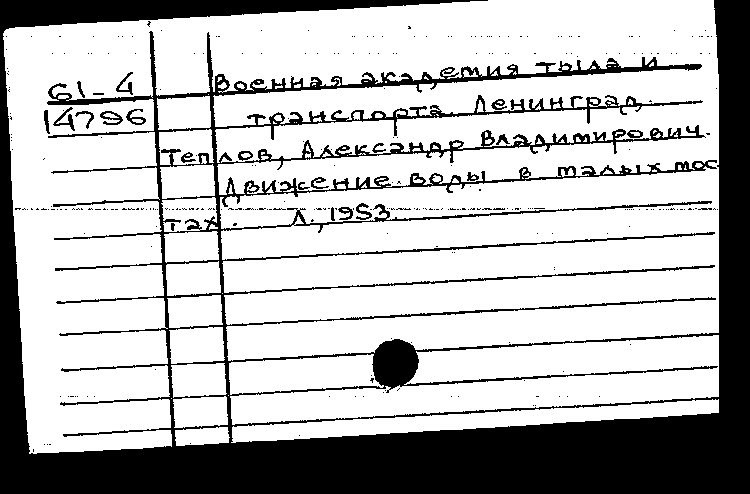 61-4 Военная академия тыла и
14796 транспорта. Ленинград.
Теплов, Александр Владимирович.
Движение воды в малых мос
тах. Л., 1953.